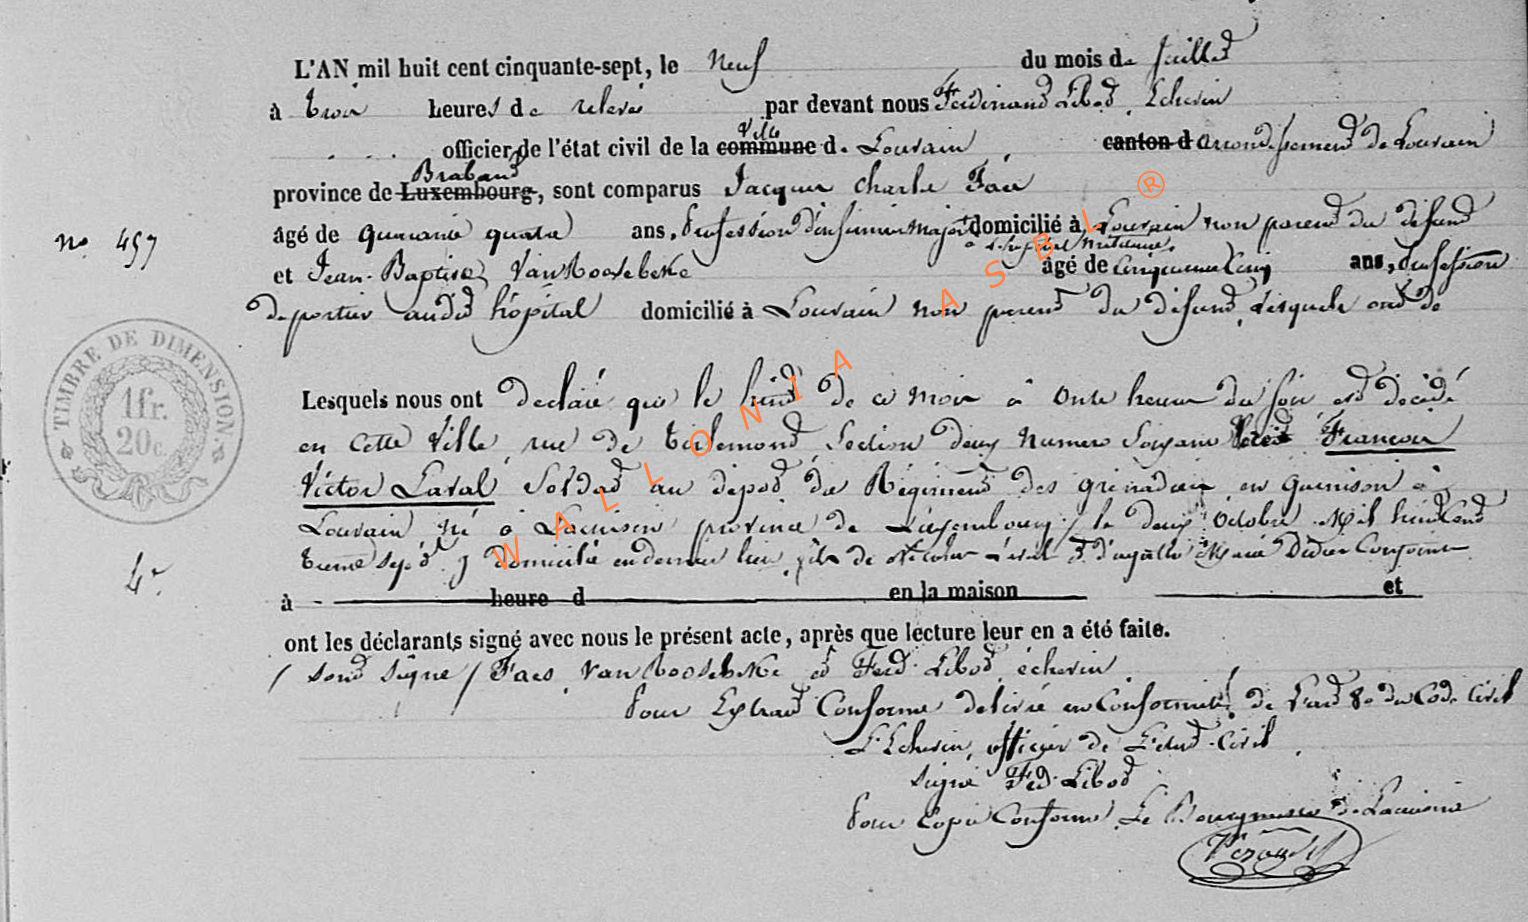 L'AN mil huit cent cinquante-sept, le Neuf du mois de Juillet
à trois heures de relevée par devant nous Ferdinand Libot, Echevin
Ville
officier de l'état civil de la commune de Louvain canton d arrondissement de Louvain
Brabant
province de Luxembourg, sont comparus Jacques Charles Faes
âgé de quarante quatre ans, Profession d'infirmier major domicilié à Louvain non parent du défunt
à l'hôpital militaire
No 457
et Jean-Baptiste VanRoosebeke âgé de Cinquante Cinq ans, profession
de portier audit hôpital domicilié à Louvain non parent du défunt, lesquels ont de
TIMBRE DE DIMENSION.
1 fr.
20 c.
Lesquels nous ont déclaré que le huit de ce mois à onze heures du soir est décédé
en cette Ville, rue de Tirlemont, Section deux Numero Soixante François
Victor Laval Soldat au dépôt du Régiment des grenadiers en garnison à
Louvain né à Lacuisine province de Luxembourg, le deux Octobre Mil huit Cent
trente sept, y domicilié en dernier lieu, fils de Nicolas Laval et d'Marie Didier Conjoints
à heure d en la maison et
ont les déclarants signé avec nous le présent acte, après que lecture leur en a été faite.
/ sont signé / Faes, VanRoosebeke et Ferd Libot, échevin
Pour Extrait Conforme délivré en Conformité de l'art 80 du Code Civil
L'Echevin, officier de L'état-Civil
signé Fed. Libot
Pour Copie Conforme, Le Bourgmestre de Lacuisine
WALLONIA ASBL ®